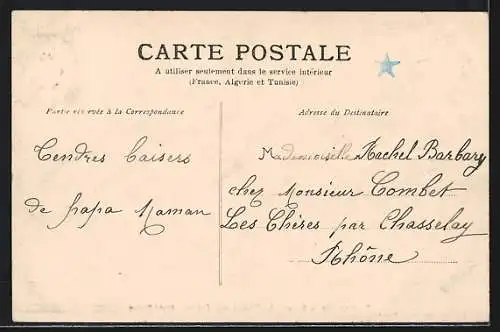 CARTE POSTALE
A utiliser seulement dans le service intérieur
(France, Algerie et Tunisie)
Partie réservée à la Correspondance
Tendres baisers
de papa Maman
Adresse du Destinataire
Mademoiselle Rachel Barbary
chez Monsieur Combet
Les Chères par Chasselay
Rhône